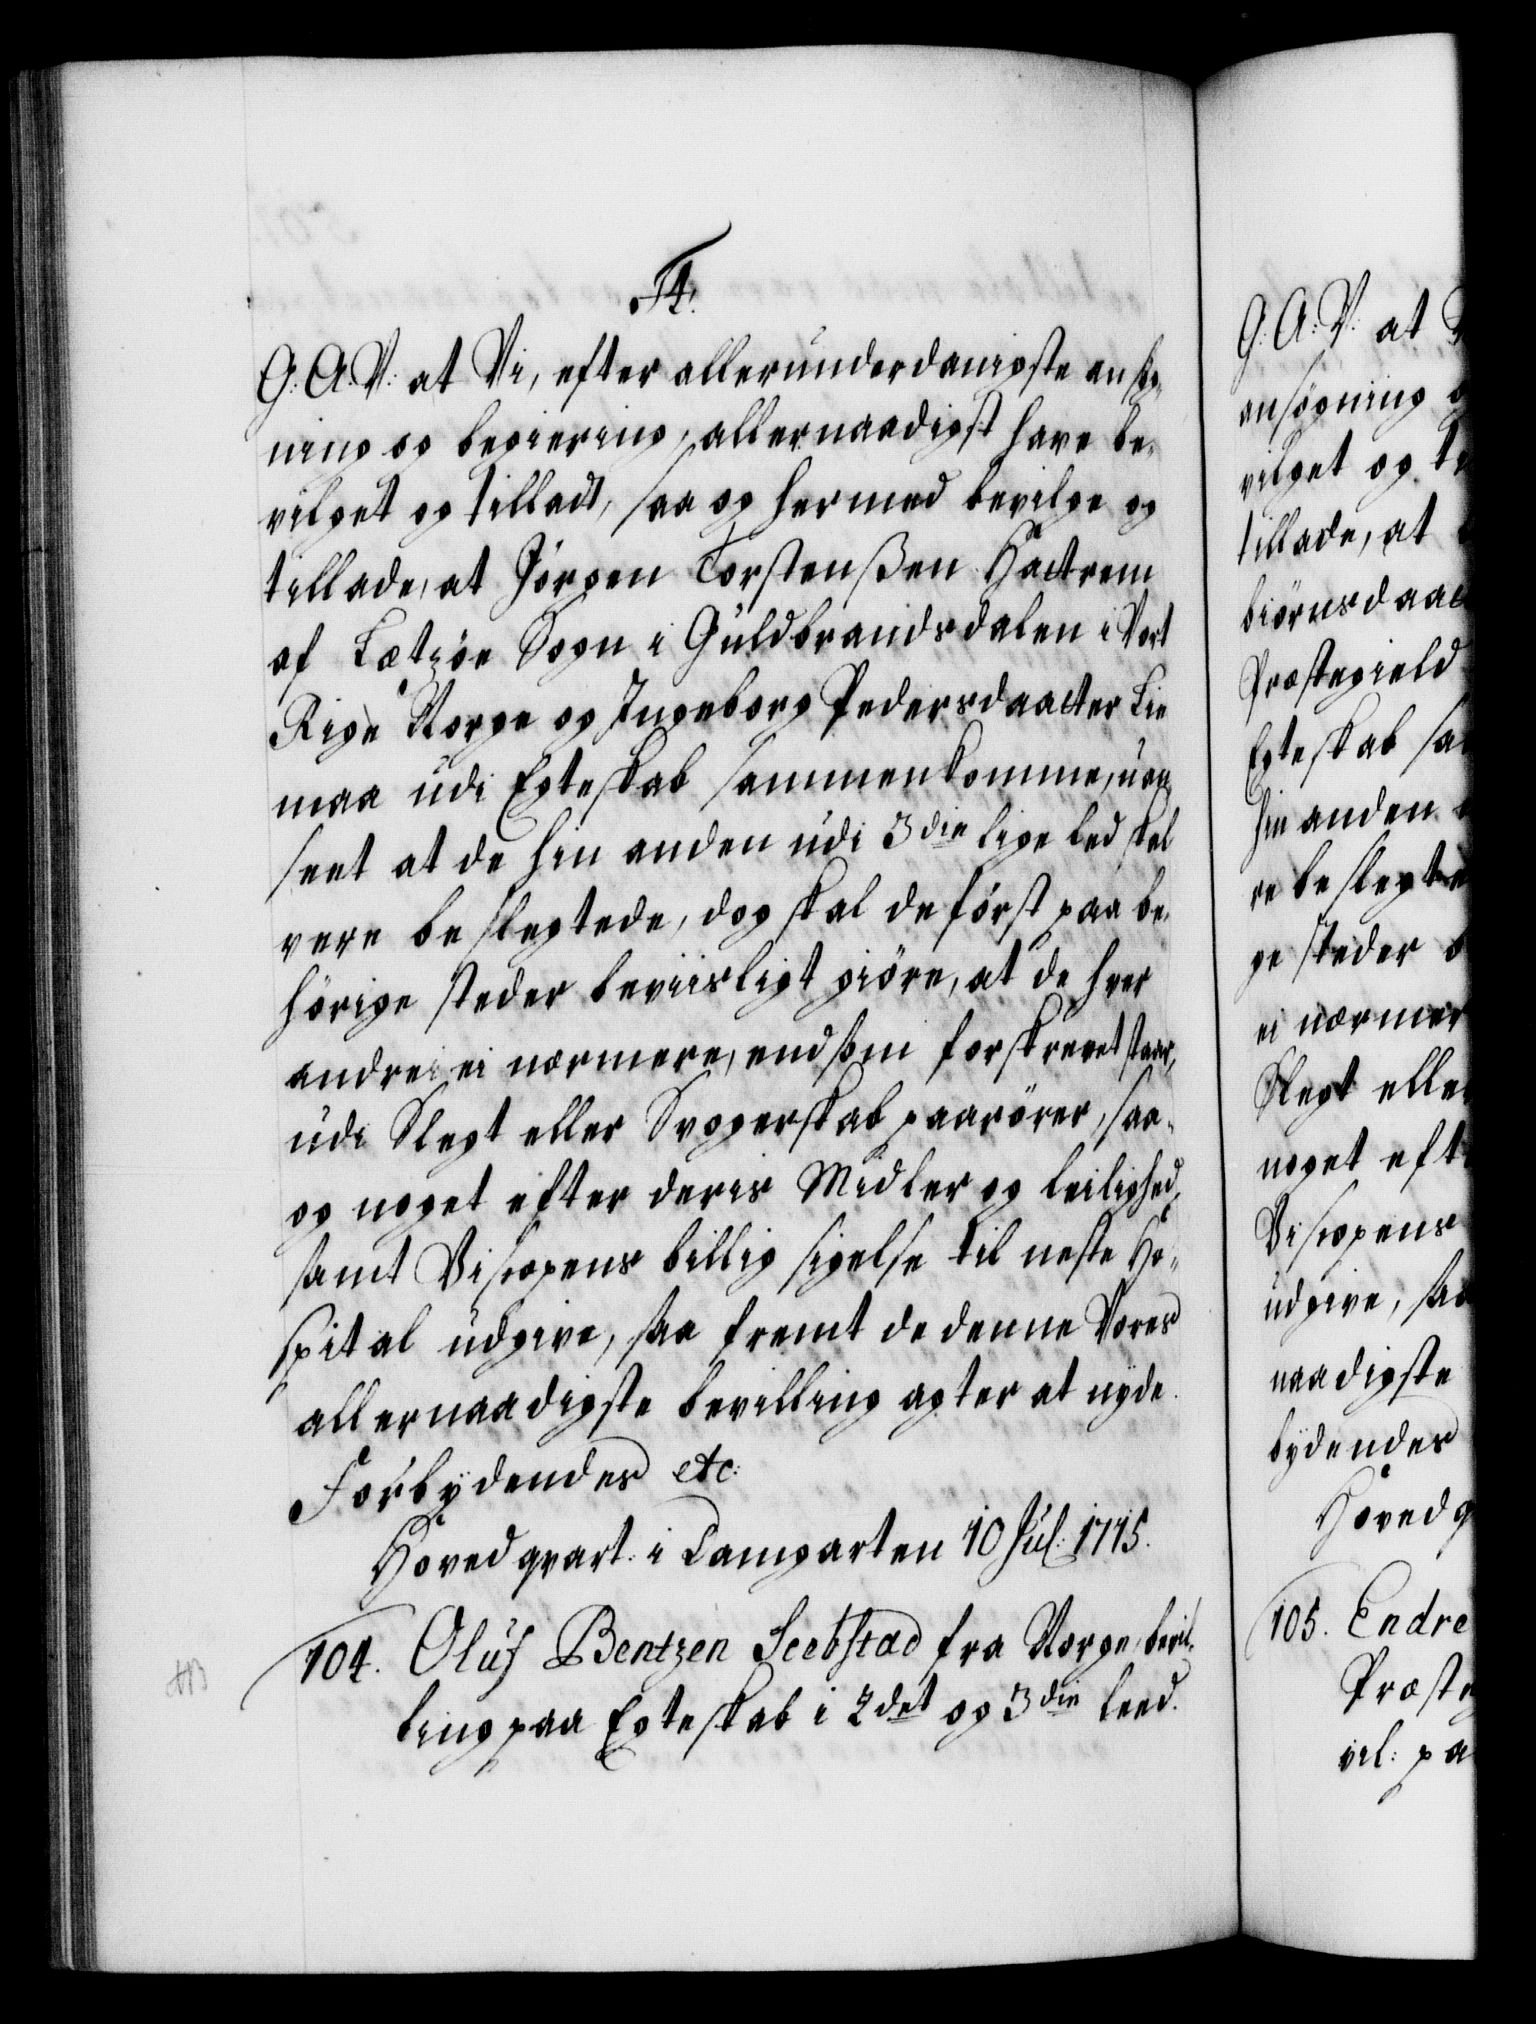 F4.
G: A: V: at Vi, efter allerunderdanigste ansøg-
ning og begiering, allernaadigst have be-
vilget og tilladt, saa og hermed bevilge og
tillade, at Jørgen Torstenßen Hactrem
af Lætzøe Sogn i Guldbrandsdalen i Vort
Rige Norge og Ingeborg Pedersdaatter Lie
maa udi Egteskab sammenkomme, uan-
seet at de hin anden udi 3die lige led skal
vere beslegtede, dog skal de først paa be-
hørige steder beviisligt giøre, at de hver
andre ei nærmere, end som forskrevet staar,
udi Slegt eller Svogerskab paarører, saa
og noget efter deris Midler og leilighed,
samt Biscopens billig sigelse til neste Ho-
spital udgive, saa fremt de denne Vores
allernaadigste bevilling agter at nyde.
Forbydendes etc:
Hovedqvart: i Lamgarten 10 Jul: 1715.
104. Oluf Bentzen Seebstad fra Norge, bevil-
ling paa Egteskab i 2det og 3die leed.
G: A: V: at
ansøgning
vilget og
tillade, at
biørnsdaat
Præstegield
Egteskab
hin anden
re beslegte
ge steder
ei nærmer
Slegt eller
noget
Biscopens
udgive, saa
naadigste
bydendes
Hovedq
105. Endre
Præste
vil: pa